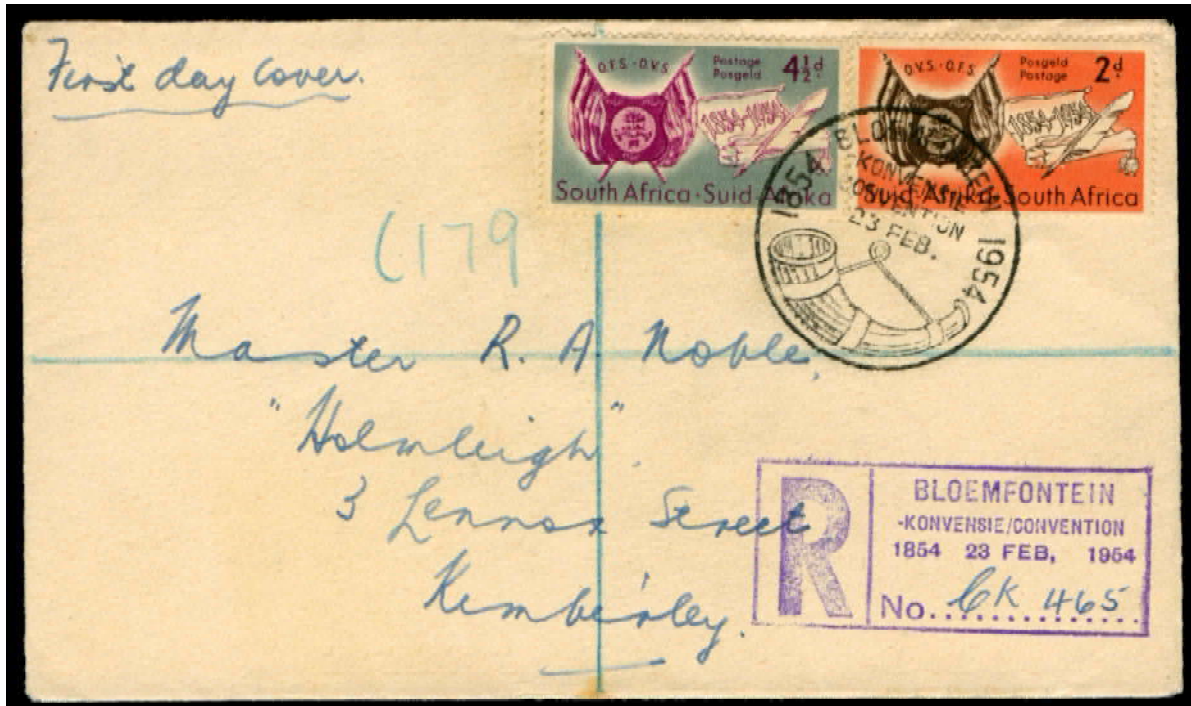 First day Cover.
O.F.S. · O.V.S.
Postage
Posgeld
4½d.
1854-1954
South Africa · Suid-Afrika
O.V.S. · O.F.S.
Posgeld
Postage
2d.
1854-1954
Suid-Afrika · South Africa
1854 BLOEMFONTEIN 1954
KONVENSIE
CONVENTION
23 FEB.
179
Master R. A. Noble,
"Holmleigh".
3 Lennox Street
Kimberley.
R
BLOEMFONTEIN
-KONVENSIE/CONVENTION
1854 23 FEB, 1954
No. CK 465